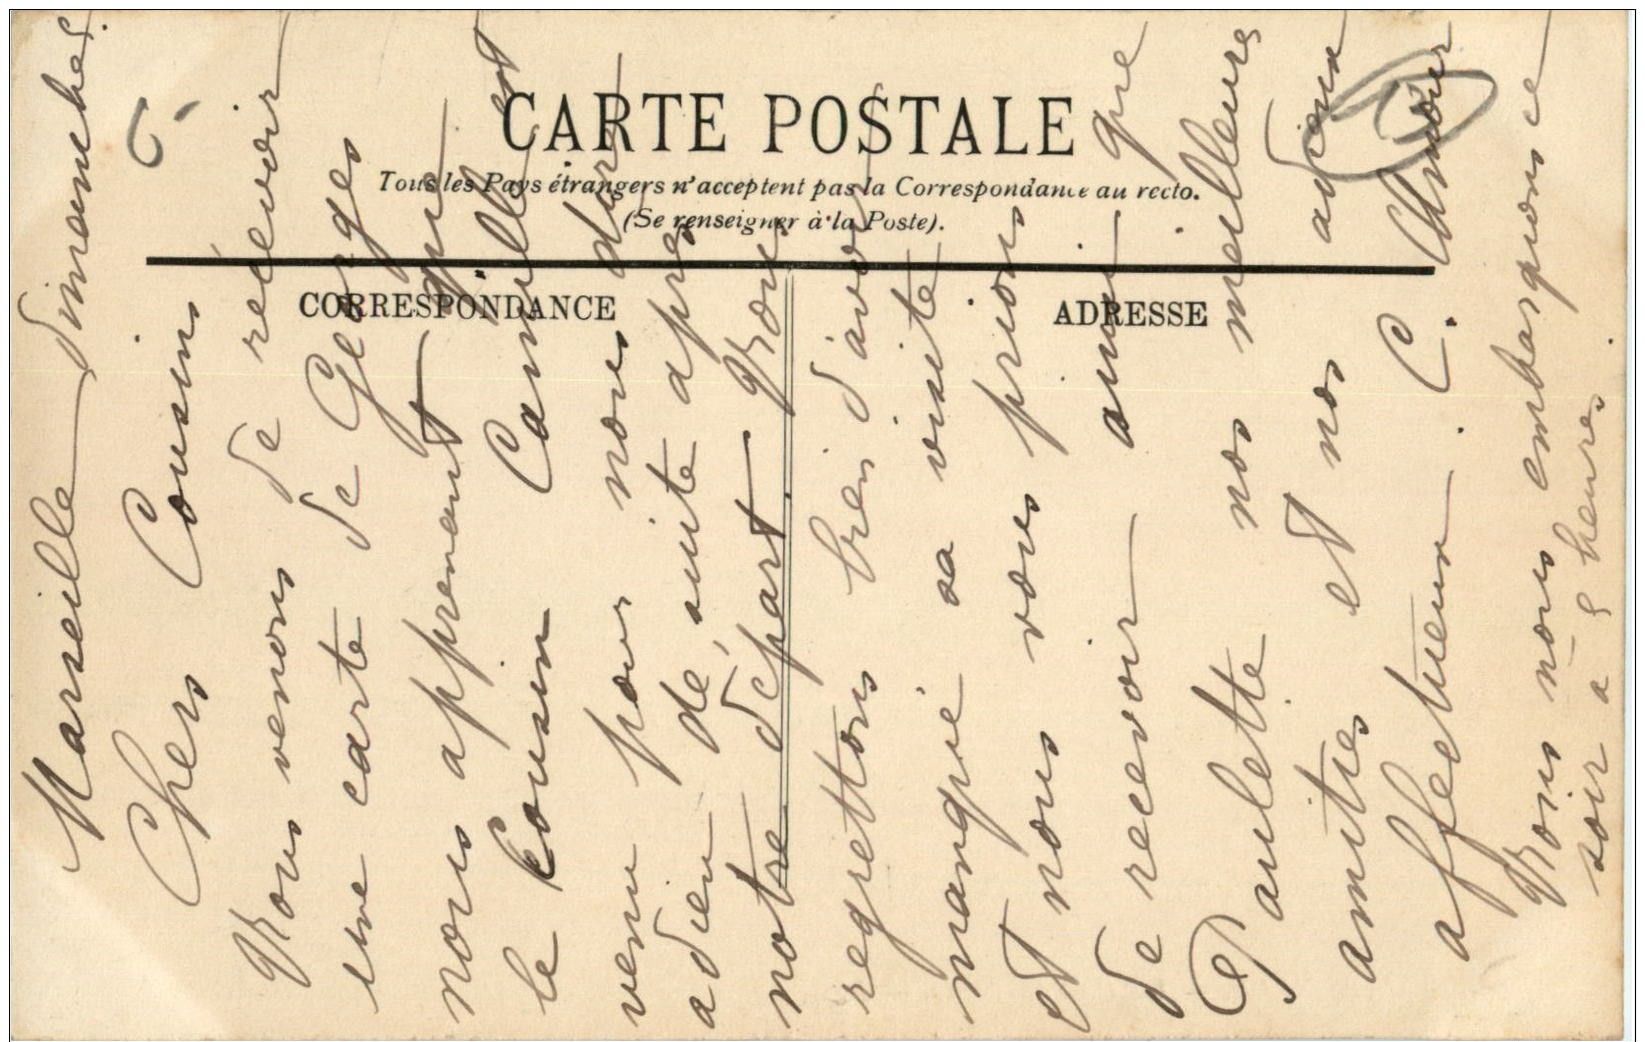 CARTE POSTALE
Tous les Pays étrangers n'acceptent pas la Correspondance au recto.
(Se renseigner à la Poste).
CORRESPONDANCE
ADRESSE
Marseille Dimanche
Chers Cousins
Nous venons de recevoir
une carte de Georges
nous apprenant que
le Cousin Camille est
venu pour nous dire
adieu de suite après
notre départ Nous
regrettons bien d'avoir
manqué sa visite
et nous vous prions
de recevoir ainsi que
Paulette nos meilleures
amitiés et nos adieux
affectueux. C.
Nous nous embarquons ce
soir a 5 heures.